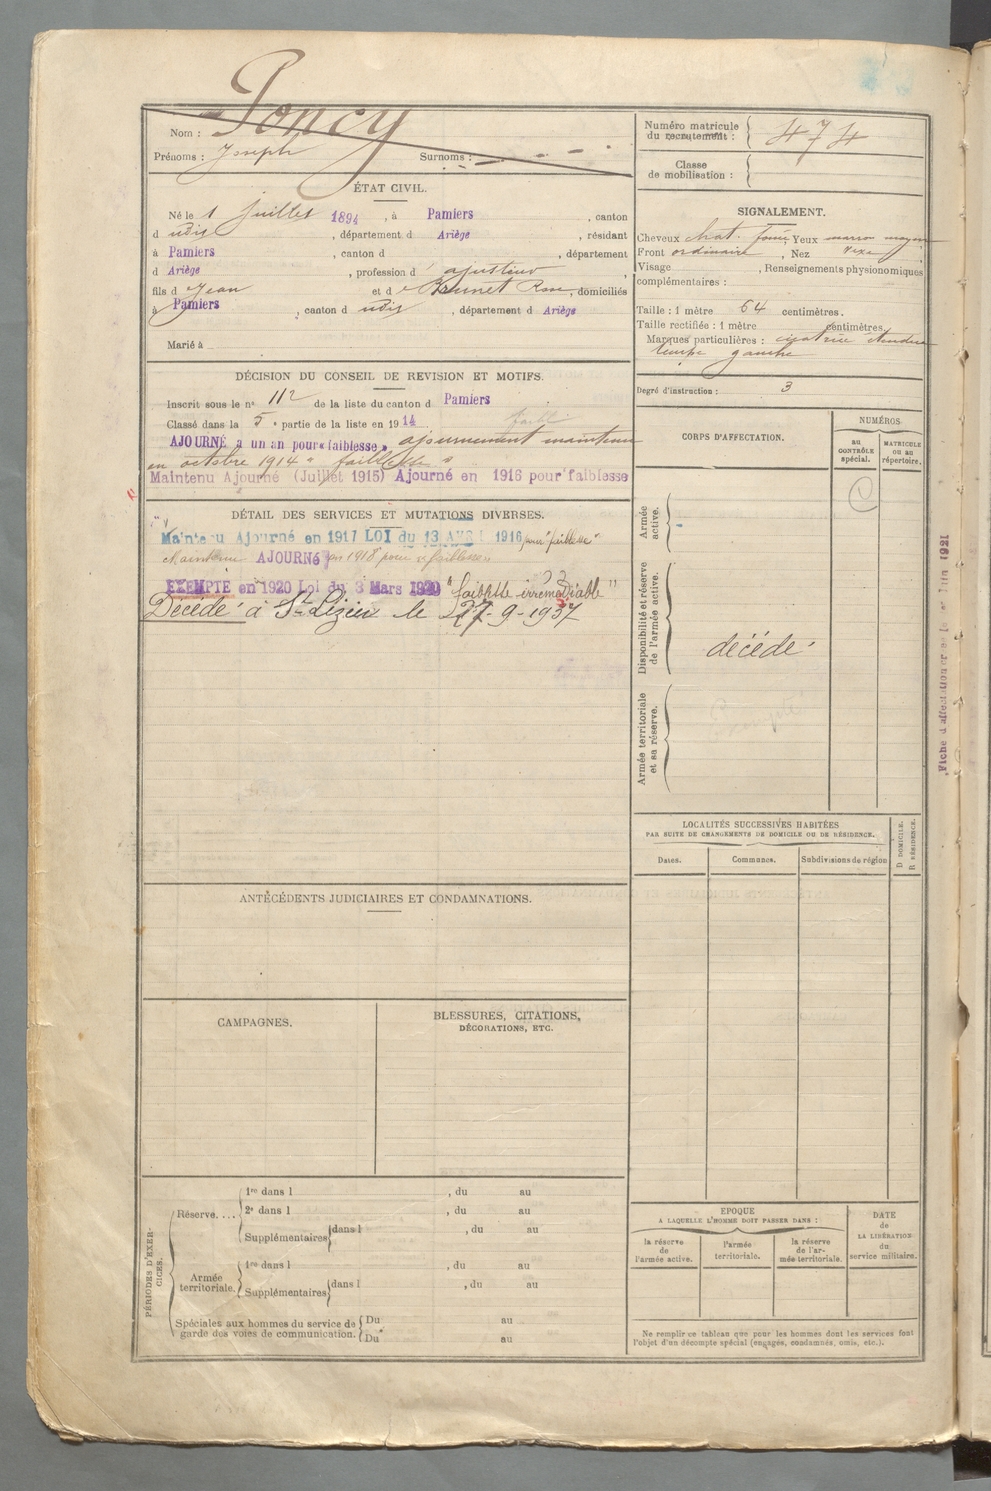 Poncy
Nom :
Prénoms : Joseph Surnoms :
Numéro matricule
du recrutement : 474
Classe
de mobilisation :
ÉTAT CIVIL.
Né le 1 Juillet 1894, à Pamiers, canton
d udis, département d Ariège, résidant
à Pamiers, canton d , département
d Ariège, profession d ajusteur
fils d Jean et d e Brunet Rose, domiciliés
à Pamiers, canton d udis, département d Ariège
Marié à
SIGNALEMENT.
Cheveux chat. foncé Yeux marron moyen
Front ordinaire, Nez
Visage , Renseignements physionomiques
complémentaires :
Taille : 1 mètre 64 centimètres.
Taille rectifiée : 1 mètre centimètres.
Marques particulières : cicatrice étendue
tempe gauche
Degré d'instruction : 3
DÉCISION DU CONSEIL DE REVISION ET MOTIFS.
Inscrit sous le n° 112 de la liste du canton d Pamiers
Classé dans la 5e partie de la liste en 1914
AJOURNÉ à un an pour « faiblesse » ajournement maintenu
en octobre 1914 " faiblesse "
Maintenu Ajourné (Juillet 1915) Ajourné en 1916 pour faiblesse
DÉTAIL DES SERVICES ET MUTATIONS DIVERSES.
Maintenu Ajourné en 1917 LOI du 13 AVRIL 1916 pour "faiblesse"
Maintenu AJOURNÉ en 1918 pour "faiblesse"
EXEMPTÉ en 1920 Loi du 3 Mars 1920 "faiblesse irrémédiable"
Décédé à St Lizier le 27-9-1937
CORPS D'AFFECTATION.
NUMÉROS
au
CONTRÔLE
spécial.
MATRICULE
ou au
répertoire.
Armée
active.
Disponibilité et réserve
de l'armée active.
décédé
Armée territoriale
et sa réserve.
LOCALITÉS SUCCESSIVES HABITÉES
PAR SUITE DE CHANGEMENTS DE DOMICILE OU DE RÉSIDENCE.
D DOMICILE.
R RÉSIDENCE.
Dates. Communes. Subdivisions de région
ANTÉCÉDENTS JUDICIAIRES ET CONDAMNATIONS.
CAMPAGNES.
BLESSURES, CITATIONS,
DÉCORATIONS, ETC.
PÉRIODES D'EXER-
CICES.
Réserve....
1re dans l , du au
2e dans l , du au
Supplémentaires dans l , du au
Armée
territoriale.
1re dans l , du au
Supplémentaires dans l , du au
Spéciales aux hommes du service de
garde des voies de communication.
Du au
Du au
EPOQUE
A LAQUELLE L'HOMME DOIT PASSER DANS :
la réserve
de
l'armée active.
l'armée
territoriale.
la réserve
de l'ar-
mée territoriale.
DATE
de
LA LIBÉRATION
du
service militaire.
Ne remplir ce tableau que pour les hommes dont les services font
l'objet d'un décompte spécial (engagés, condamnés, omis, etc.).